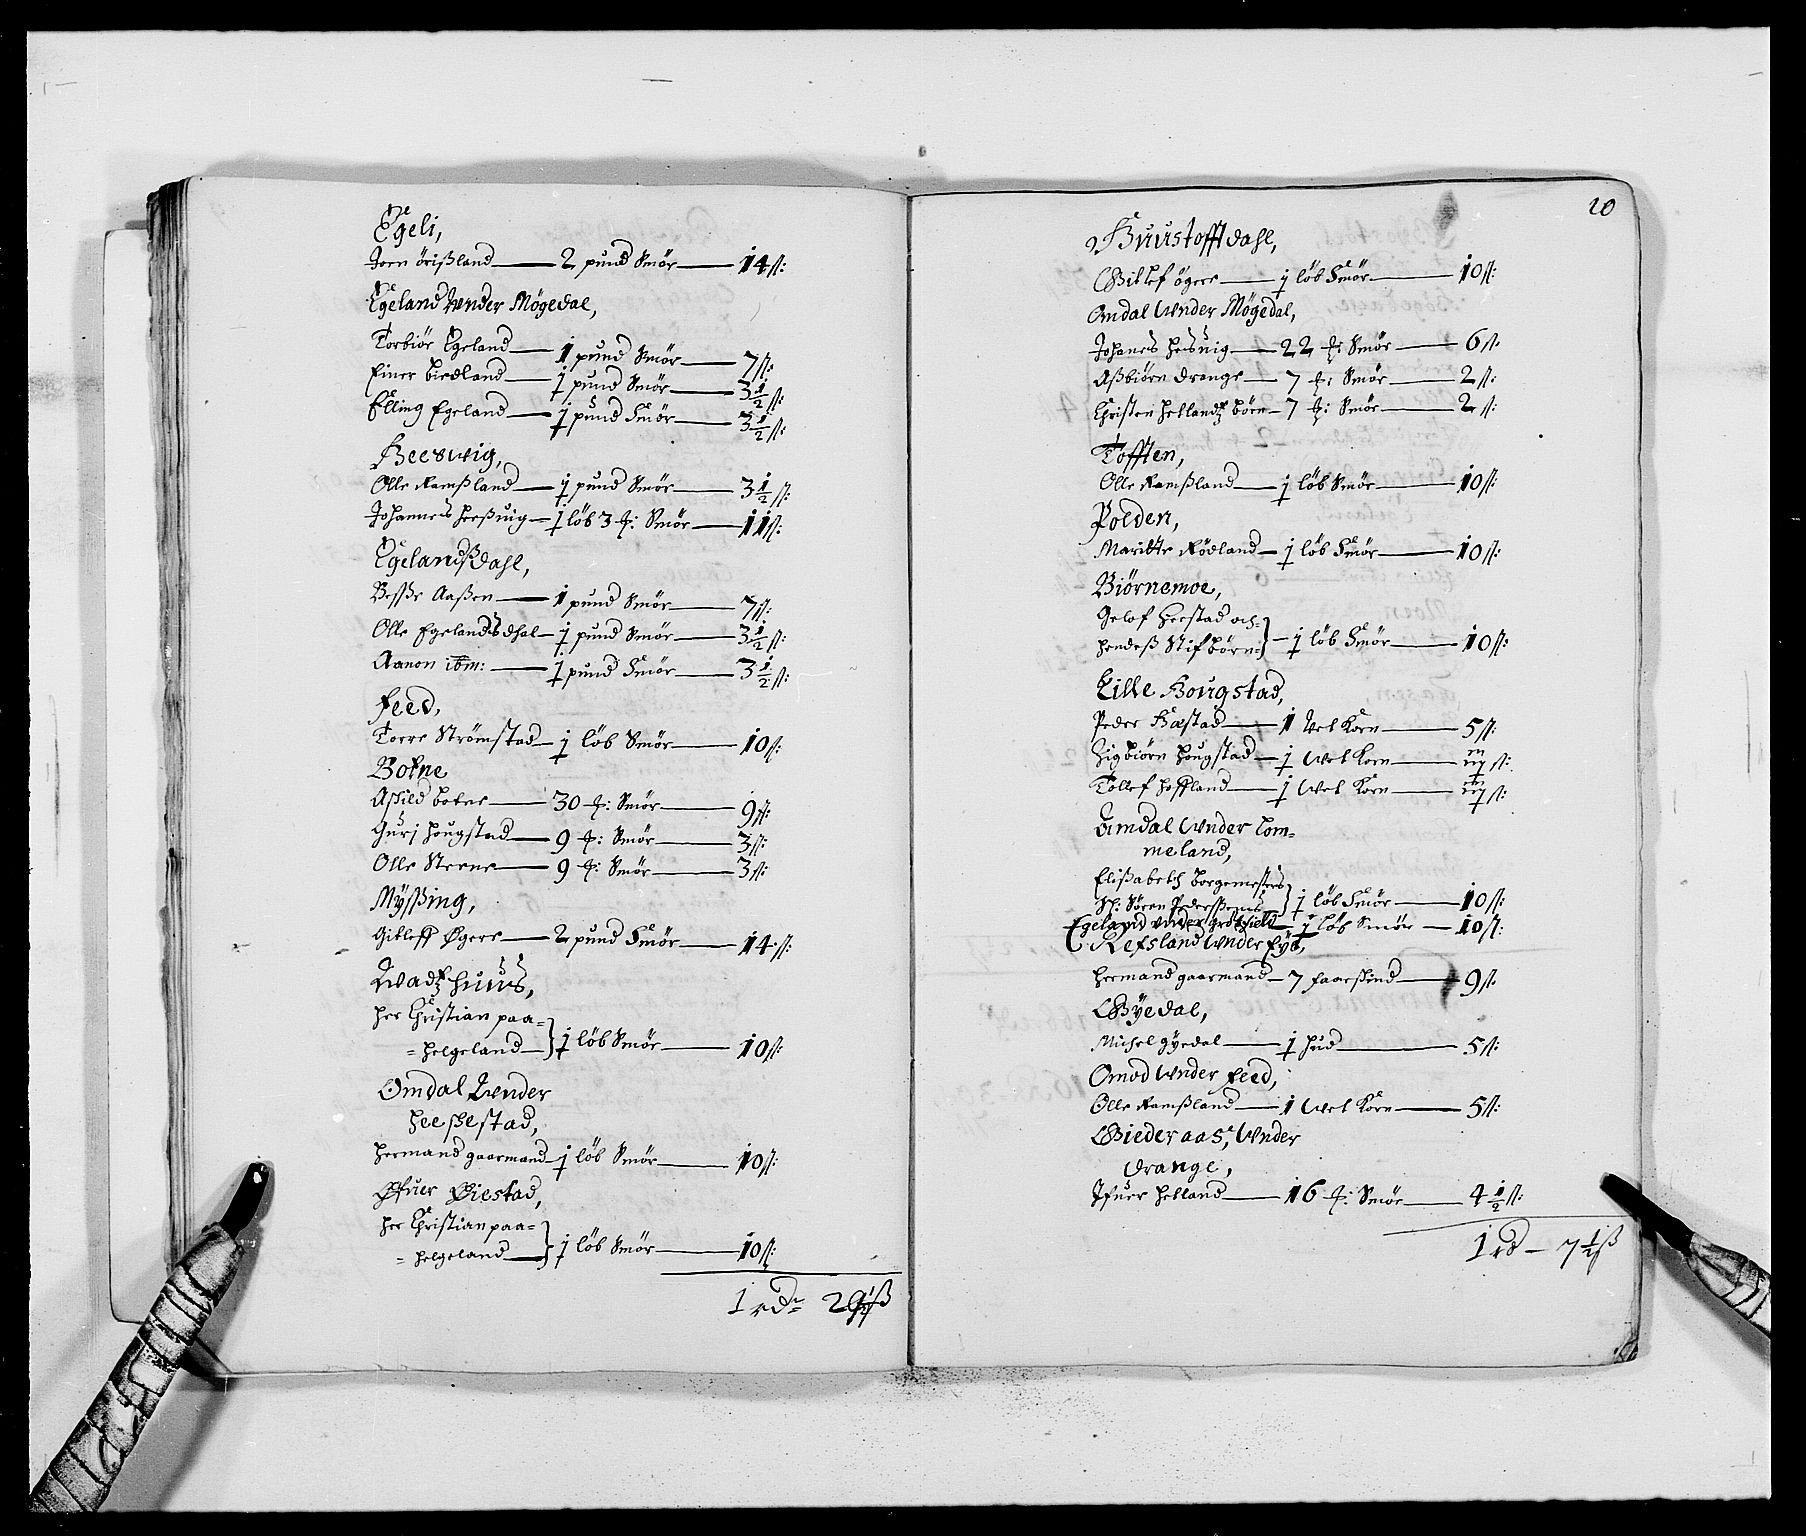 Egeli,
Jorn örißland — 2 pund Smör — 14 ß:
Egeland Wnder Mögedal,
Torbiör Egeland — 1 pund Smör — 7 ß:
Einer birdland — ½ pund Smör — 3½ ß:
Elling Egeland — ½ pund Smör — 3½ ß:
Heeswig,
Olle Ramßland — ½ pund Smör — 3½ ß:
Johannes heeßuig — 1 löb 3 ℔: Smör — 11 ß:
Egelandßdahl,
Besse Aaßen — 1 pund Smör — 7 ß:
Olle Egelandsdhal — ½ pund Smör — 3½ ß:
Aanon ibm: — ½ pund Smör — 3½ ß:
Feed,
Torre Strömstad — ½ löb Smör — 10 ß:
Botne
Aßild botne — 30 ℔: Smör — 9 ß:
Gurj hougstad — 9 ℔: Smör — 3 ß:
Olle Steene — 9 ℔: Smör — 3 ß:
Myßing,
Gitleff Øgere — 2 pund Smör — 14 ß:
Wadtzhuus,
her Christian paa=
=helgeland — ½ löb Smör — 10 ß:
Omdal Wnder
heeßestad,
hermand gaarmand ½ löb Smör — 10 ß:
Øfuer Øiestad,
her Christian paa=
=helgeland — ½ löb Smör — 10 ß:
1 rd
20
Huustofftdahl,
Gitlef ögere — ½ löb Smör — 10 ß:
Omdal Wnder Mögedal,
Johanes hesuig — 22 ℔: Smör — 6 ß:
Aßbiörn drange — 7 ℔: Smör — 2 ß:
Christen hetlandtz börn — 7 ℔: Smör — 2 ß:
Tofften,
Olle Ramßland — ½ löb Smör — 10 ß:
Polden,
Maritte Rödland — ½ löb Smör — 10 ß:
Biörnemoe,
Gelof heestad och=
hendeß Stifbörn= — ½ löb Smör — 10 ß:
Lille Hougstad,
Peder Hæstad — 1 Wet Korn — 5 ß:
Sigbiörn hougstad — ½ Wet Korn — ß:
Tollef hoffland — ½ Wet Korn — ß:
Amdal Wnder Lom=
meland,
Elißabeth borgemesters
Sl: Sören Pederßens ½ löb Smör — 10 ß:
Egeland under grötsield — ½ löb Smör — 10 ß:
Refsland Wnder Eye,
hermand gaarmand — 7 faarskind — 9 ß:
Gyedal,
Michel gyedal — ½ hud — 5 ß:
Omod Wnder feed,
Olle Ramßland — 1 Wet Korn — 5 ß:
Giederaas, Wnder
drange,
Ifuer hetland — 16 ℔: Smör — 4½ ß:
1 rd — 7½ ß